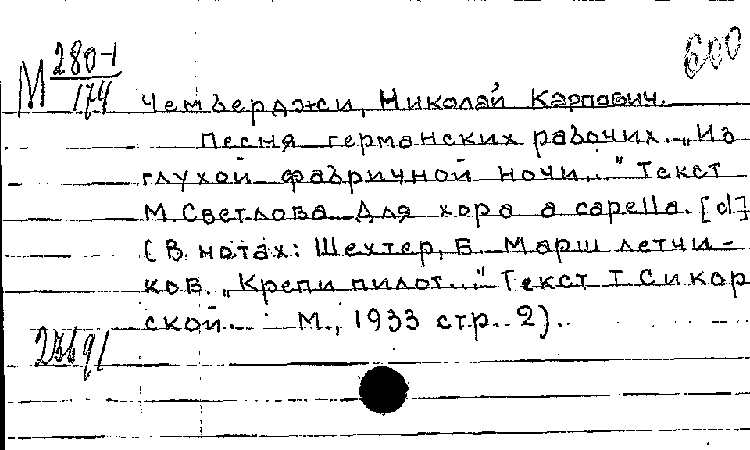 600
М 280-1
174
Чемберджи, Николай Карпович.
Песня германских рабочих. „Из
глухой фабричной ночи..." Текст
М. Светлова. Для хора a capella. [d]
(В нотах: Шехтер, Б. Марш летчи-
ков. „Крепи пилот..." Текст Т. Сикор
ской. М., 1933 стр. 2).